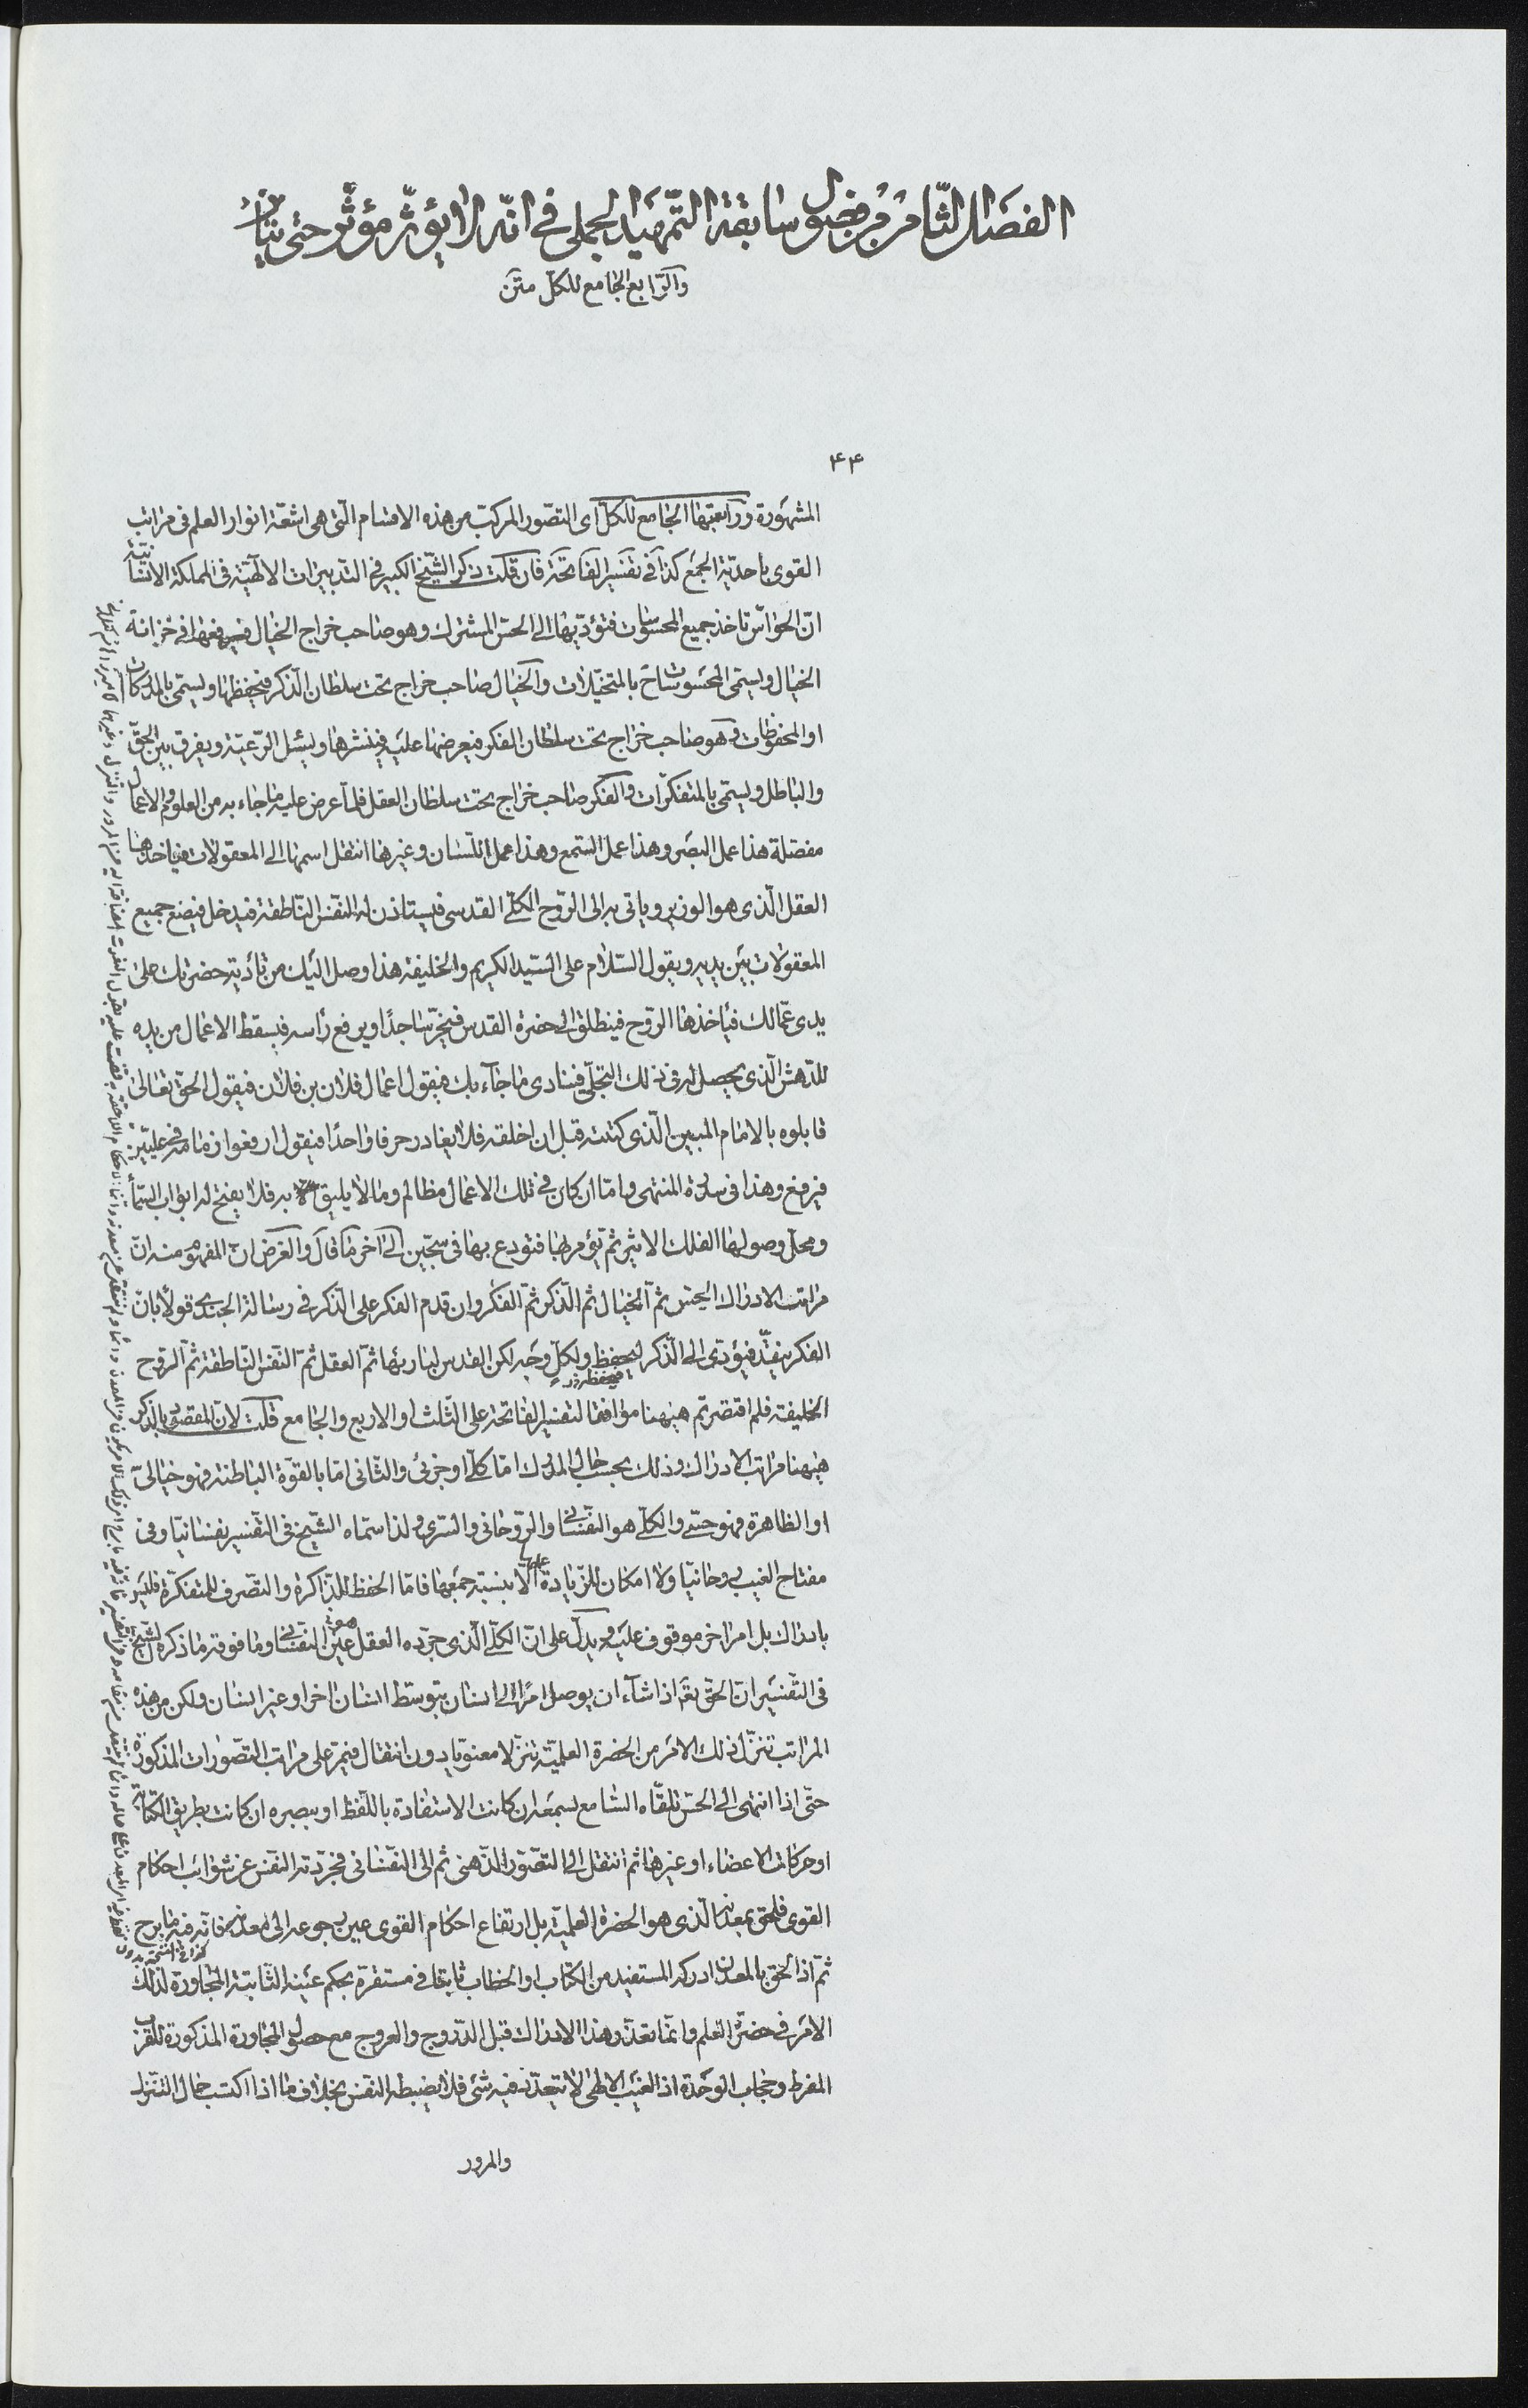 الفصل الثّامن من فصول سابقة التّمهيد الجملى فى انّه لا يؤثّر مؤثّر حتى يتأثّر
والرّابع الجامع للكلّ متن
۴۴
المشهورة ورابعتها الجامع للكلّ اى التصّور المركب من هذه الاقسام الّتى هى اشعّة انوار العلم فى مراتب
القوى باحديّة الجمع كذا فى تفسير الفاتحة فان قلت ذكر الشّيخ الكبير فى التدبيرات الالهيّة فى المملكة الانسانيّة
انّ الحواسّ تاخذ جميع المحسوسات فتؤدّيها الى الحسّ المشترك وهو صاحب خراج الخيال فيرفعها فى خزانة
الخيال ويسمّى المحسوسات ح بالمتخيّلات والخيال صاحب خراج تحت سلطان الذّكر فيحفظها ويسمّى بالمذكرات
او المحفوظات وهو صاحب خراج تحت سلطان الفكر فيعرضها عليه فينشرها ويسئل الرّعيّة ويفرق بين الحقّ
والباطل ويسمّى بالمتفكّرات والفكر صاحب خراج تحت سلطان العقل فلمّا عرض عليه ما جاء به من العلوم والاعمال
مفصلة هذا عمل البصر وهذا عمل السّمع وهذا عمل اللّسان وغيرها انتقل اسمها الى المعقولات فياخذها
العقل الّذى هو الوزير وياتى به الى الرّوح الكلّى القدسى فيستاذن له النّفس النّاطقة فيدخل فيضع جميع
المعقولات بين يديه ويقول السّلام على السّيد الكريم والخليفة هذا وصل اليك من بادية حضرتك على
يدى عمّالك فياخذها الرّوح فينطلق الى حضرة القدس فيخرّ ساجدًا ويرفع رأسه فيسقط الاعمال من يده
للدّهش الّذى يحصل له فى ذلك التجلّى فينادى ما جاء بك فيقول اعمال فلان بن فلان فيقول الحقّ تعالى
قابلوه بالامام المبين الّذى كتبته قبل ان اخلقه فلا يغادر حرفا واحدًا فيقول ارفعوا زمامه فى عليّين
فيرفع وهذا فى سدرة المنتهى وامّا ان كان فى تلك الاعمال مظالم وما لا يليق به فلا يفتح له ابواب السّمأ
ومحلّ وصولها الفلك الاثير ثم يؤمر بها فتودع بها فى سجّين الى آخر ما قال والغرض انّ المفهوم منه انّ
مراتب الادراك الحسّ ثم الخيال ثم الذّكر ثمّ الفكر وان قدم الفكر على الذّكر فى رسالة الجندى قولًا بانّ
الفكر ينفّذ فيؤدّى الى الذّكر ليحفظ ولكلّ وجه لكن القدس لباريها ثمّ العقل ثمّ النّفس النّاطقة ثمّ الرّوح
الخليفة فلم اقتصرتم هيهنا موافقا لتفسير الفاتحة على الثّلث او الاربع والجامع قلت لانّ المقصود بالذّكر
هيهنا مراتب الادراك وذلك بحسب حال المدرك امّا كلّى او جزئى والثّانى امّا بالقوّة الباطنة فهو خيالىّ
او الظاهرة فهو حسّى والكلّى هو النّفسانى والرّوحانى والسّرى ولذا سمّاه الشّيخ فى التّفسير نفسانيّا وفى
مفتاح الغيب روحانيّا ولا امكان للزّيادة عليها الّا بنسبة جمعها فامّا الحفظ للذّاكرة والتصّرف للمتفكّرة فليس
بادراك بل امر اخر موقوف عليه ويدلّ على انّ الكلّى الّذى جرّده العقل عين النّفسانى وما فوقه ما ذكره الشّيخ
فى التّفسير انّ الحقّ تع اذا شآء ان يوصل امرًا الى انسان بتوسّط انسان اخر او غير انسان ولكن من هذه
المراتب تنزّل ذلك الامر من الحضرة العلميّة تنزّلا معنويّا دون انتقال فيمرّ على مراتب التصّورات المذكورة
حتّى اذا انتهى الى الحسّ تلقّاه السّامع بسمعه ان كانت الاستفادة باللّفظ او ببصره ان كانت بطريق الكتابة
او حركات الاعضاء او غيرها ثم انتقل الى التصّور الذّهنى ثم الى النّفسانى فجرّدته النّفس عن شوائب احكام
القوى فلحق بمعدنه الّذى هو الحضرة العلميّة بل ارتفاع احكام القوى عين رجوعه الى معدنه فانّه فيه ما برح
ثمّ اذا لحق بالمعدن ادركه المستفيد من الكتاب او الخطاب ثابتا فى مستقرّه بحكم عينه الثّابتة المجاورة لذلك
الامر فى حضرة العلم وانّما تعذّر هذا الادراك قبل الدّروج والعروج مع حصول المجاورة المذكورة للقرب
المفرط وحجاب الوحدة اذ الغيب الالهى لا يتعدّد فيه شئ فلا يضبطه النّفس بخلاف ما اذا اكتسب حال التنزّل
والمرور